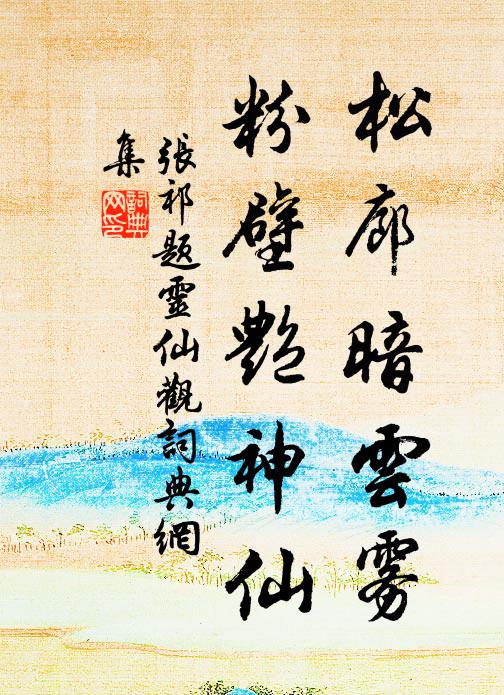 松廊暗雲雾
粉壁艷神仙
張祁題靈仙觀詞典網
集
詞典
网印